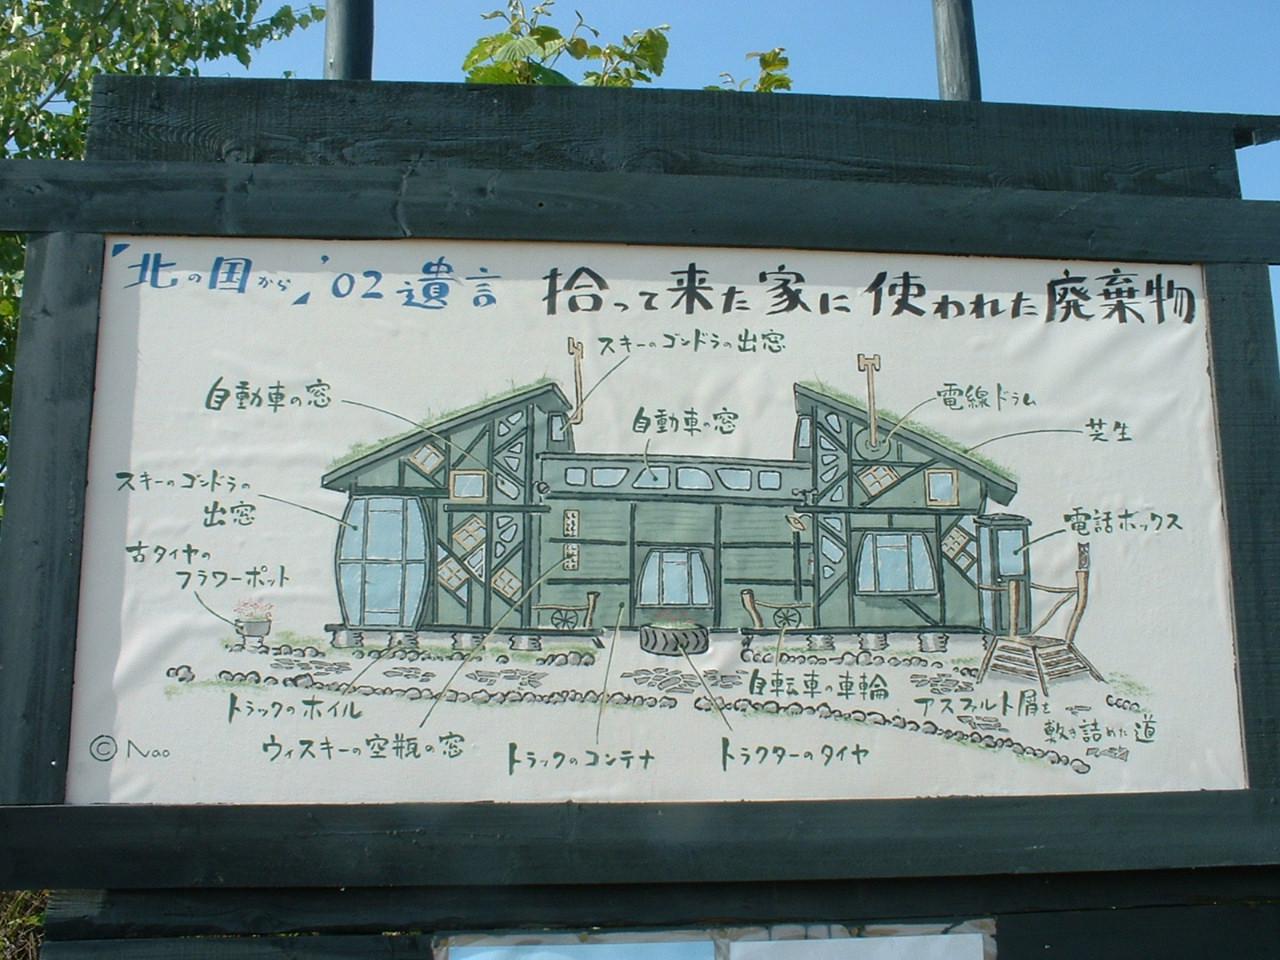 『北の国から』'02遺言 拾って来た家に使われた廃棄物
スキーのゴンドラの出窓
自動車の窓
自動車の窓
電線ドラム
芝生
スキーのゴンドラの
出窓
電話ボックス
古タイヤの
フラワーポット
自転車の車輪
トラックのホイル
アスファルト屑を
敷き詰めた道
ウィスキーの空瓶の窓
トラックのコンテナ
トラクターのタイヤ
© Nao